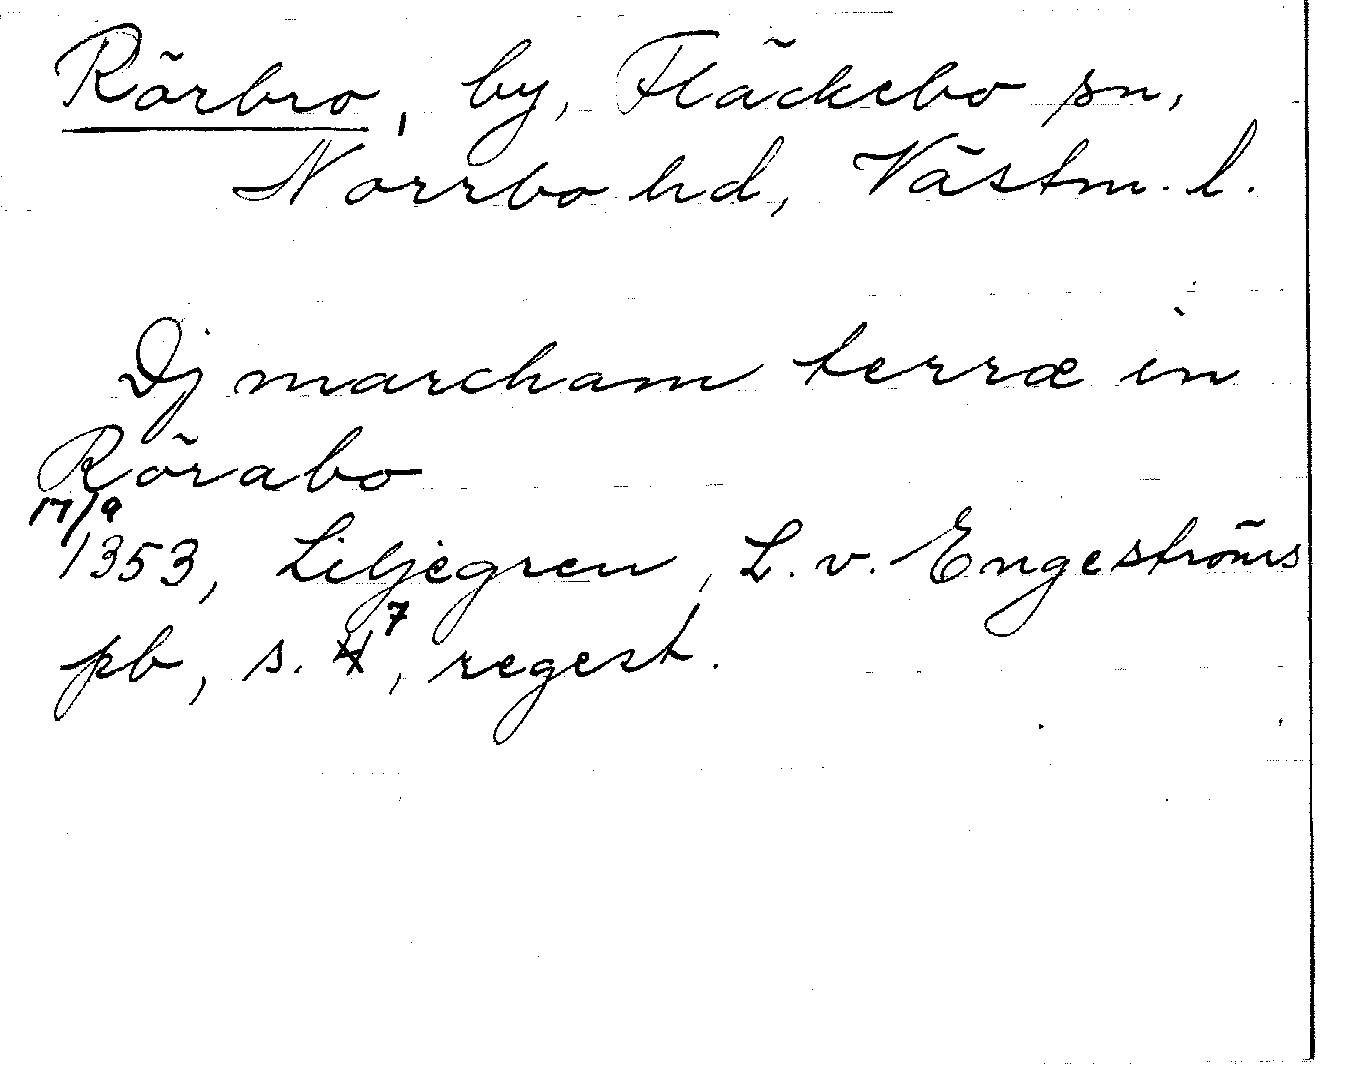 Rörbro, by, Fläckebo sn,
Norrbo hd, Västm. l.
Dj marcham terræ in
Rörabo
17/9
1353, Liljegren, L. v. Engeströms
pb, s. 7, regest.